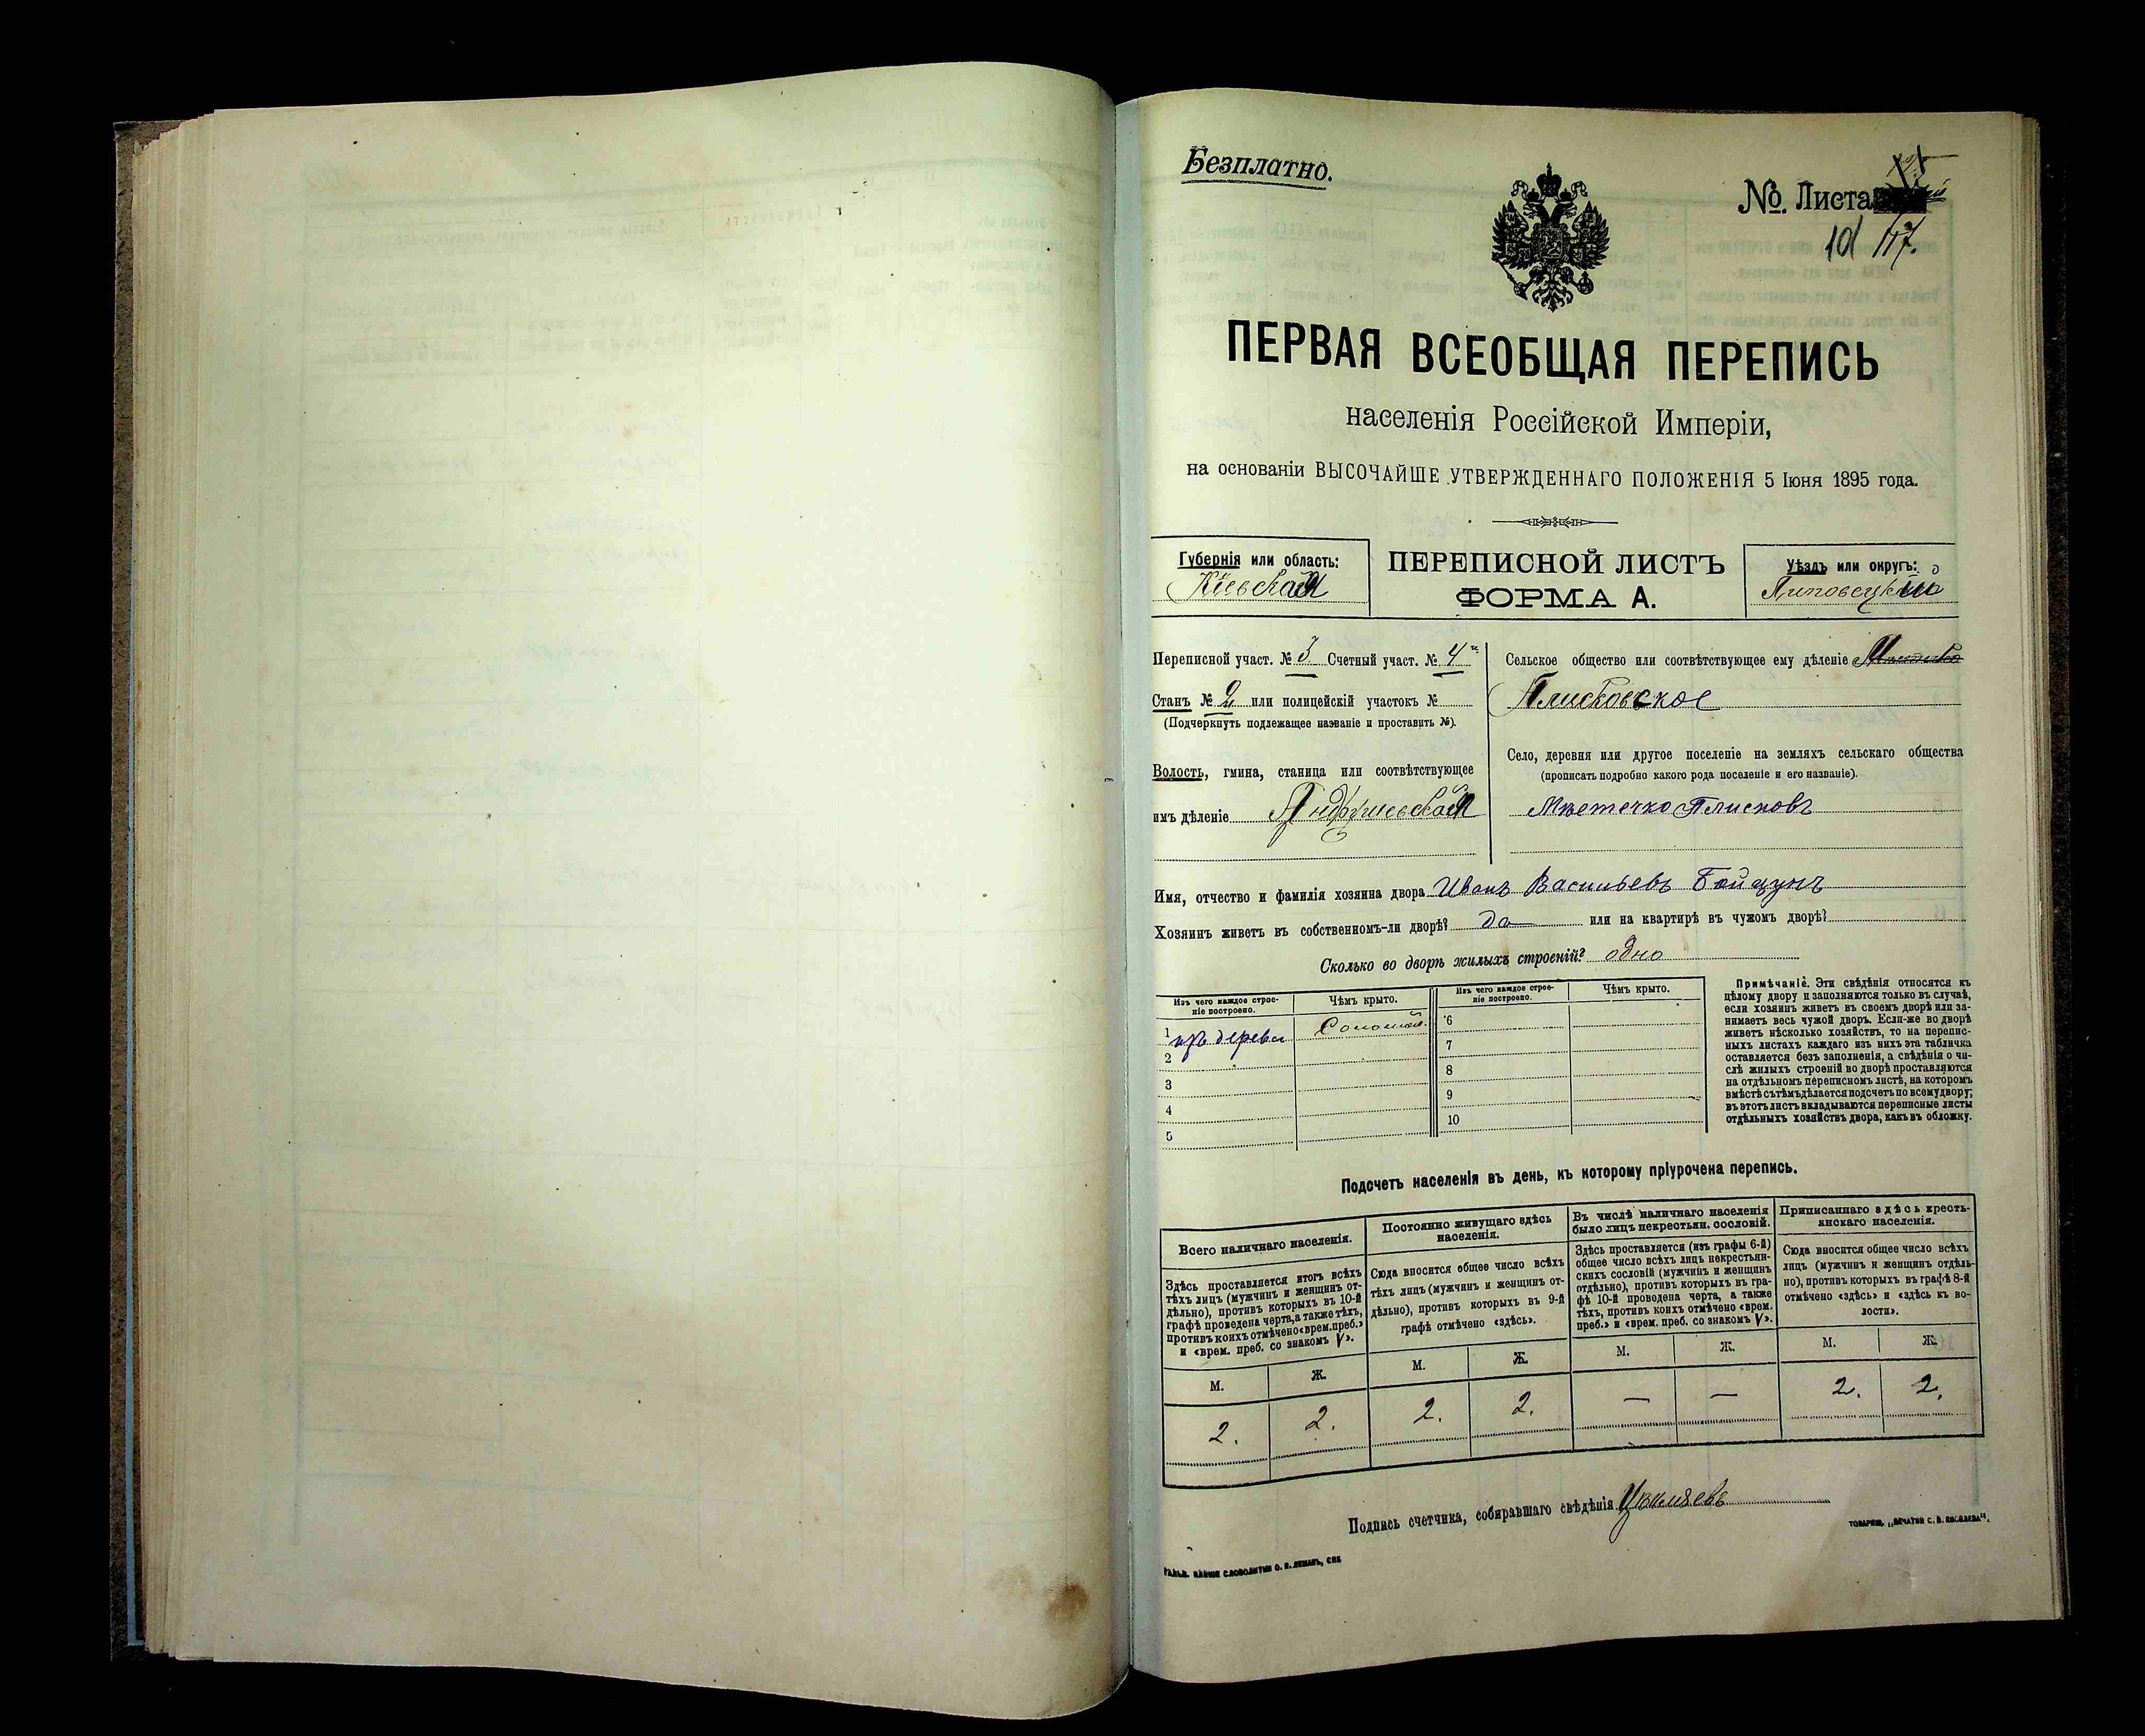 Безплатно.
№ Листа
ПЕРВАЯ ВСЕОБЩАЯ ПЕРЕПИСЬ
населенія Россійской Имперіи,
на основаніи ВЫСОЧАЙШЕ УТВЕРЖДЕННАГО ПОЛОЖЕНІЯ 5 Іюня 1895 года.
Губернія или область:
Кіевская
ПЕРЕПИСНОЙ ЛИСТЪ
ФОРМА А.
Уѣздъ или округъ:
Липовецкій
Переписной участ. № 3 Счетный участ. № 4
Станъ № 2 или полицейскій участокъ №
(Подчеркнуть подлежащее названіе и проставить №).
Волость, гмина, станица или соотвѣтствующее
имъ дѣленіе Андрушевская
Сельское общество или соотвѣтствующее ему дѣленіе
Плисковское
Село, деревня или другое поселеніе на земляхъ сельскаго общества
(прописать подробно какого рода поселеніе и его названіе).
Мѣстечко Плисковъ
Имя, отчество и фамилія хозяина двора Иванъ Васильевъ Бойцунъ
Хозяинъ живетъ въ собственномъ-ли дворѣ? да или на квартирѣ въ чужомъ дворѣ?
Сколько во дворѣ жилыхъ строеній? одно
Изъ чего каждое строе-
ніе построено.
Чѣмъ крыто.
Изъ чего каждое строе-
ніе построено.
Чѣмъ крыто.
1 изъ дерева Соломой. 6
2 7
3 8
4 9
5 10
Примѣчаніе. Эти свѣдѣнія относятся къ
цѣлому двору и заполняются только въ случаѣ,
если хозяинъ живетъ въ своемъ дворѣ или за-
нимаетъ весь чужой дворъ. Если-же во дворѣ
живетъ нѣсколько хозяйствъ, то на перепис-
ныхъ листахъ каждаго изъ нихъ эта табличка
оставляется безъ заполненія, а свѣдѣнія о чи-
слѣ жилыхъ строеній во дворѣ проставляются
на отдѣльномъ переписномъ листѣ, на которомъ
вмѣстѣ съ тѣмъ дѣлается подсчетъ по всему двору;
въ этотъ листъ вкладываются переписные листы
отдѣльныхъ хозяйствъ двора, какъ въ обложку.
Подсчетъ населенія въ день, къ которому пріурочена перепись.
Всего наличнаго населенія.
Здѣсь проставляется итогъ всѣхъ
тѣхъ лицъ (мужчинъ и женщинъ от-
дѣльно), противъ которыхъ въ 10-й
графѣ проведена черта, а также тѣхъ,
противъ коихъ отмѣчено «врем. преб.»
и «врем. преб. со знакомъ V».
М. Ж.
2. 2.
Постоянно живущаго здѣсь
населенія.
Сюда вносится общее число всѣхъ
тѣхъ лицъ (мужчинъ и женщинъ от-
дѣльно), противъ которыхъ въ 9-й
графѣ отмѣчено «здѣсь».
М. Ж.
2. 2.
Въ числѣ наличнаго населенія
было лицъ некрестьян. сословій.
Здѣсь проставляется (изъ графы 6-й)
общее число всѣхъ лицъ некрестьян-
скихъ сословій (мужчинъ и женщинъ
отдѣльно), противъ которыхъ въ гра-
фѣ 10-й проведена черта, а также
тѣхъ, противъ коихъ отмѣчено «врем.
преб.» и «врем. преб. со знакомъ V».
М. Ж.
— —
Приписаннаго здѣсь кресть-
янскаго населенія.
Сюда вносится общее число всѣхъ
лицъ (мужчинъ и женщинъ отдѣль-
но), противъ которыхъ въ графѣ 8-й
отмѣчено «здѣсь» и «здѣсь къ во-
лости».
М. Ж.
2. 2.
Подпись счетчика, собиравшаго свѣдѣнія
ТОВАРИЩ. „ПЕЧАТНЯ С. П. ЯКОВЛЕВА".
СЛОВОЛИТНИ О. И. ЛЕМАНЪ, СПБ